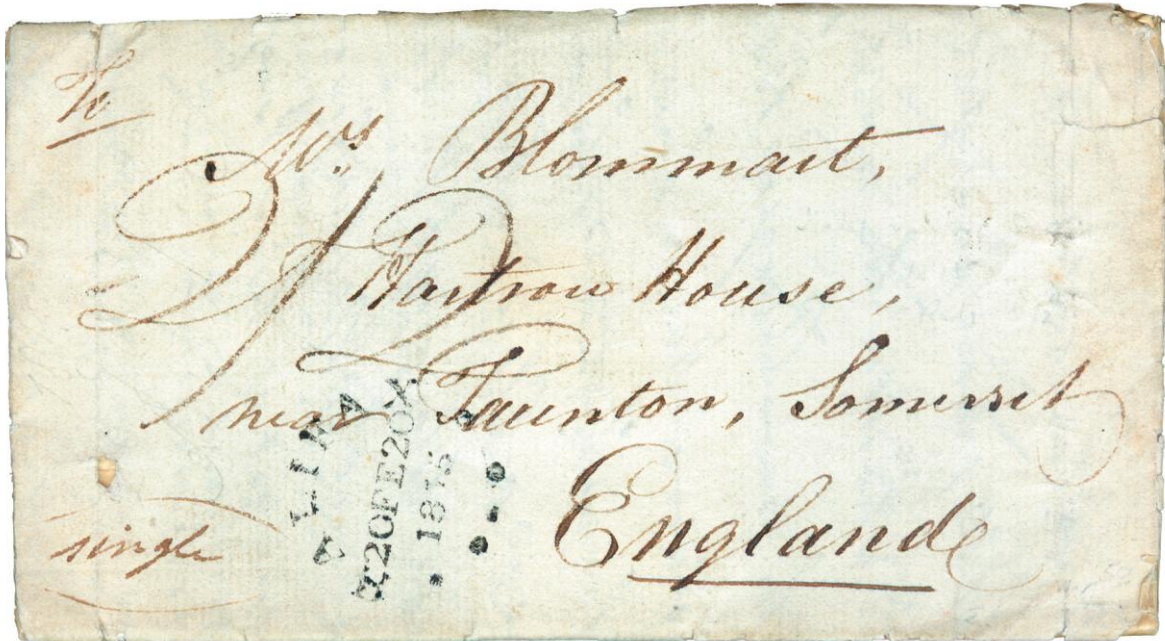 To
Mrs. Blommart,
2/2
Hartrow House,
near Taunton, Somerset
England
single
X20FE20X